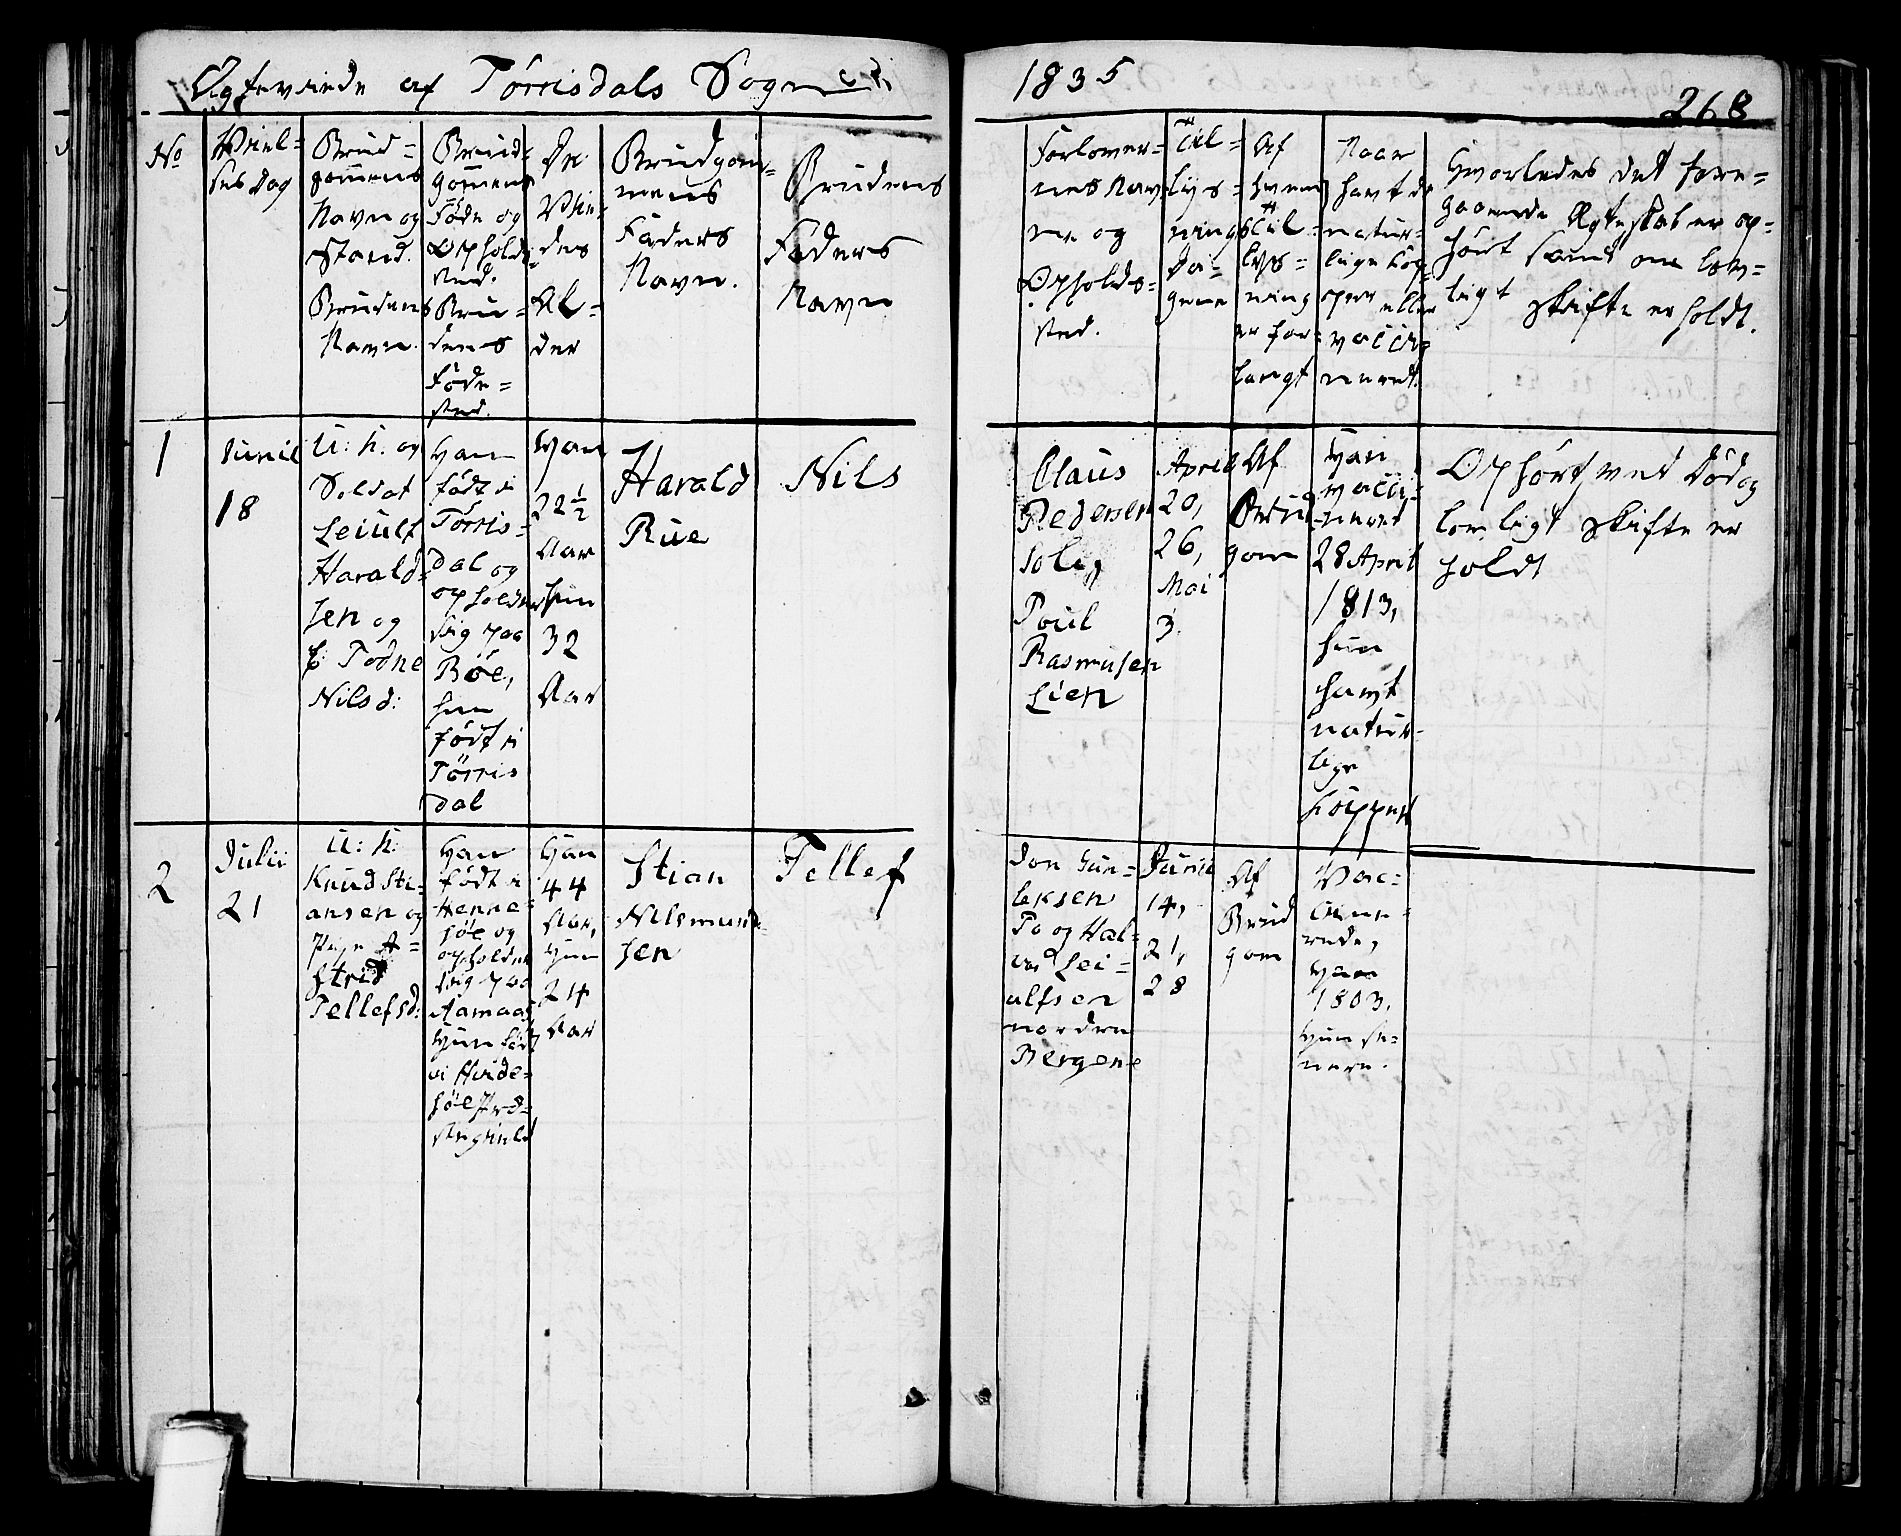 Ægteviede af Tørrisdals Sogn 1835
268
No
Viel=
ses Dag
Brud=
gommens
Navn og
Stand.
Brudens
Navn.
Brud=
gomens
Føde og
Opholds
sted.
Bru=
dens
Føde=
sted.
De
Vie=
des
Al=
der
Brudgom=
mens
Faders
Navn.
Brudens
Faders
Navn
Forlover=
nes Nav
ne og
Opholds=
sted.
Til=
lys=
nings
Da=
gene
Af
hvem
Til=
lys=
ning
er for=
langt
Naar
havt de
natur=
lige Kop
per eller
vacci=
nerede
Hvorledes det fore=
gaaende Ægteskab er op=
hørt samt om lov=
ligt Skifte er holdt.
1
Junii
18
U: K. og
Soldat
Leiulf
Harald=
sen og
P: Todne
Nilsd:
Han
født i
Tørris=
dal og
opholder
sig paa
Bøe,
hun
født i
Tørris
dal
Han
22½
Aar
hun
32
Aar
Harald
Rue
Nils
Claus
Pedersen
Solie,
Poul
Rasmusen
Lien
April
20,
26,
Mai
3.
Af
Brud
gom
Han
vacci=
neret
28 April
1813,
hun
havt
natur=
lige
Kopper
Ophørt, ved Død og
lovligt Skifte er
holdt
2
Julii
21
U: K:
Knud Sti=
ansen og
Pige A=
strid
Tellefsd:
Han
født i
Henne=
søe og
opholder
sig paa
Aamaas
Hun født
i Hvide=
søe Præ=
stegield
Han
44
Aar,
Hun
24
Aar
Stian
Nilsmund
sen
Tellef
Jon Gun=
leksen
Po og Hal=
vor Lei=
ulfsen
nordre
Bergene
Junii
14,
21,
28
Af
Brud
gom
Vac=
cine=
rede,
Han
1803,
Hun se=
nere.